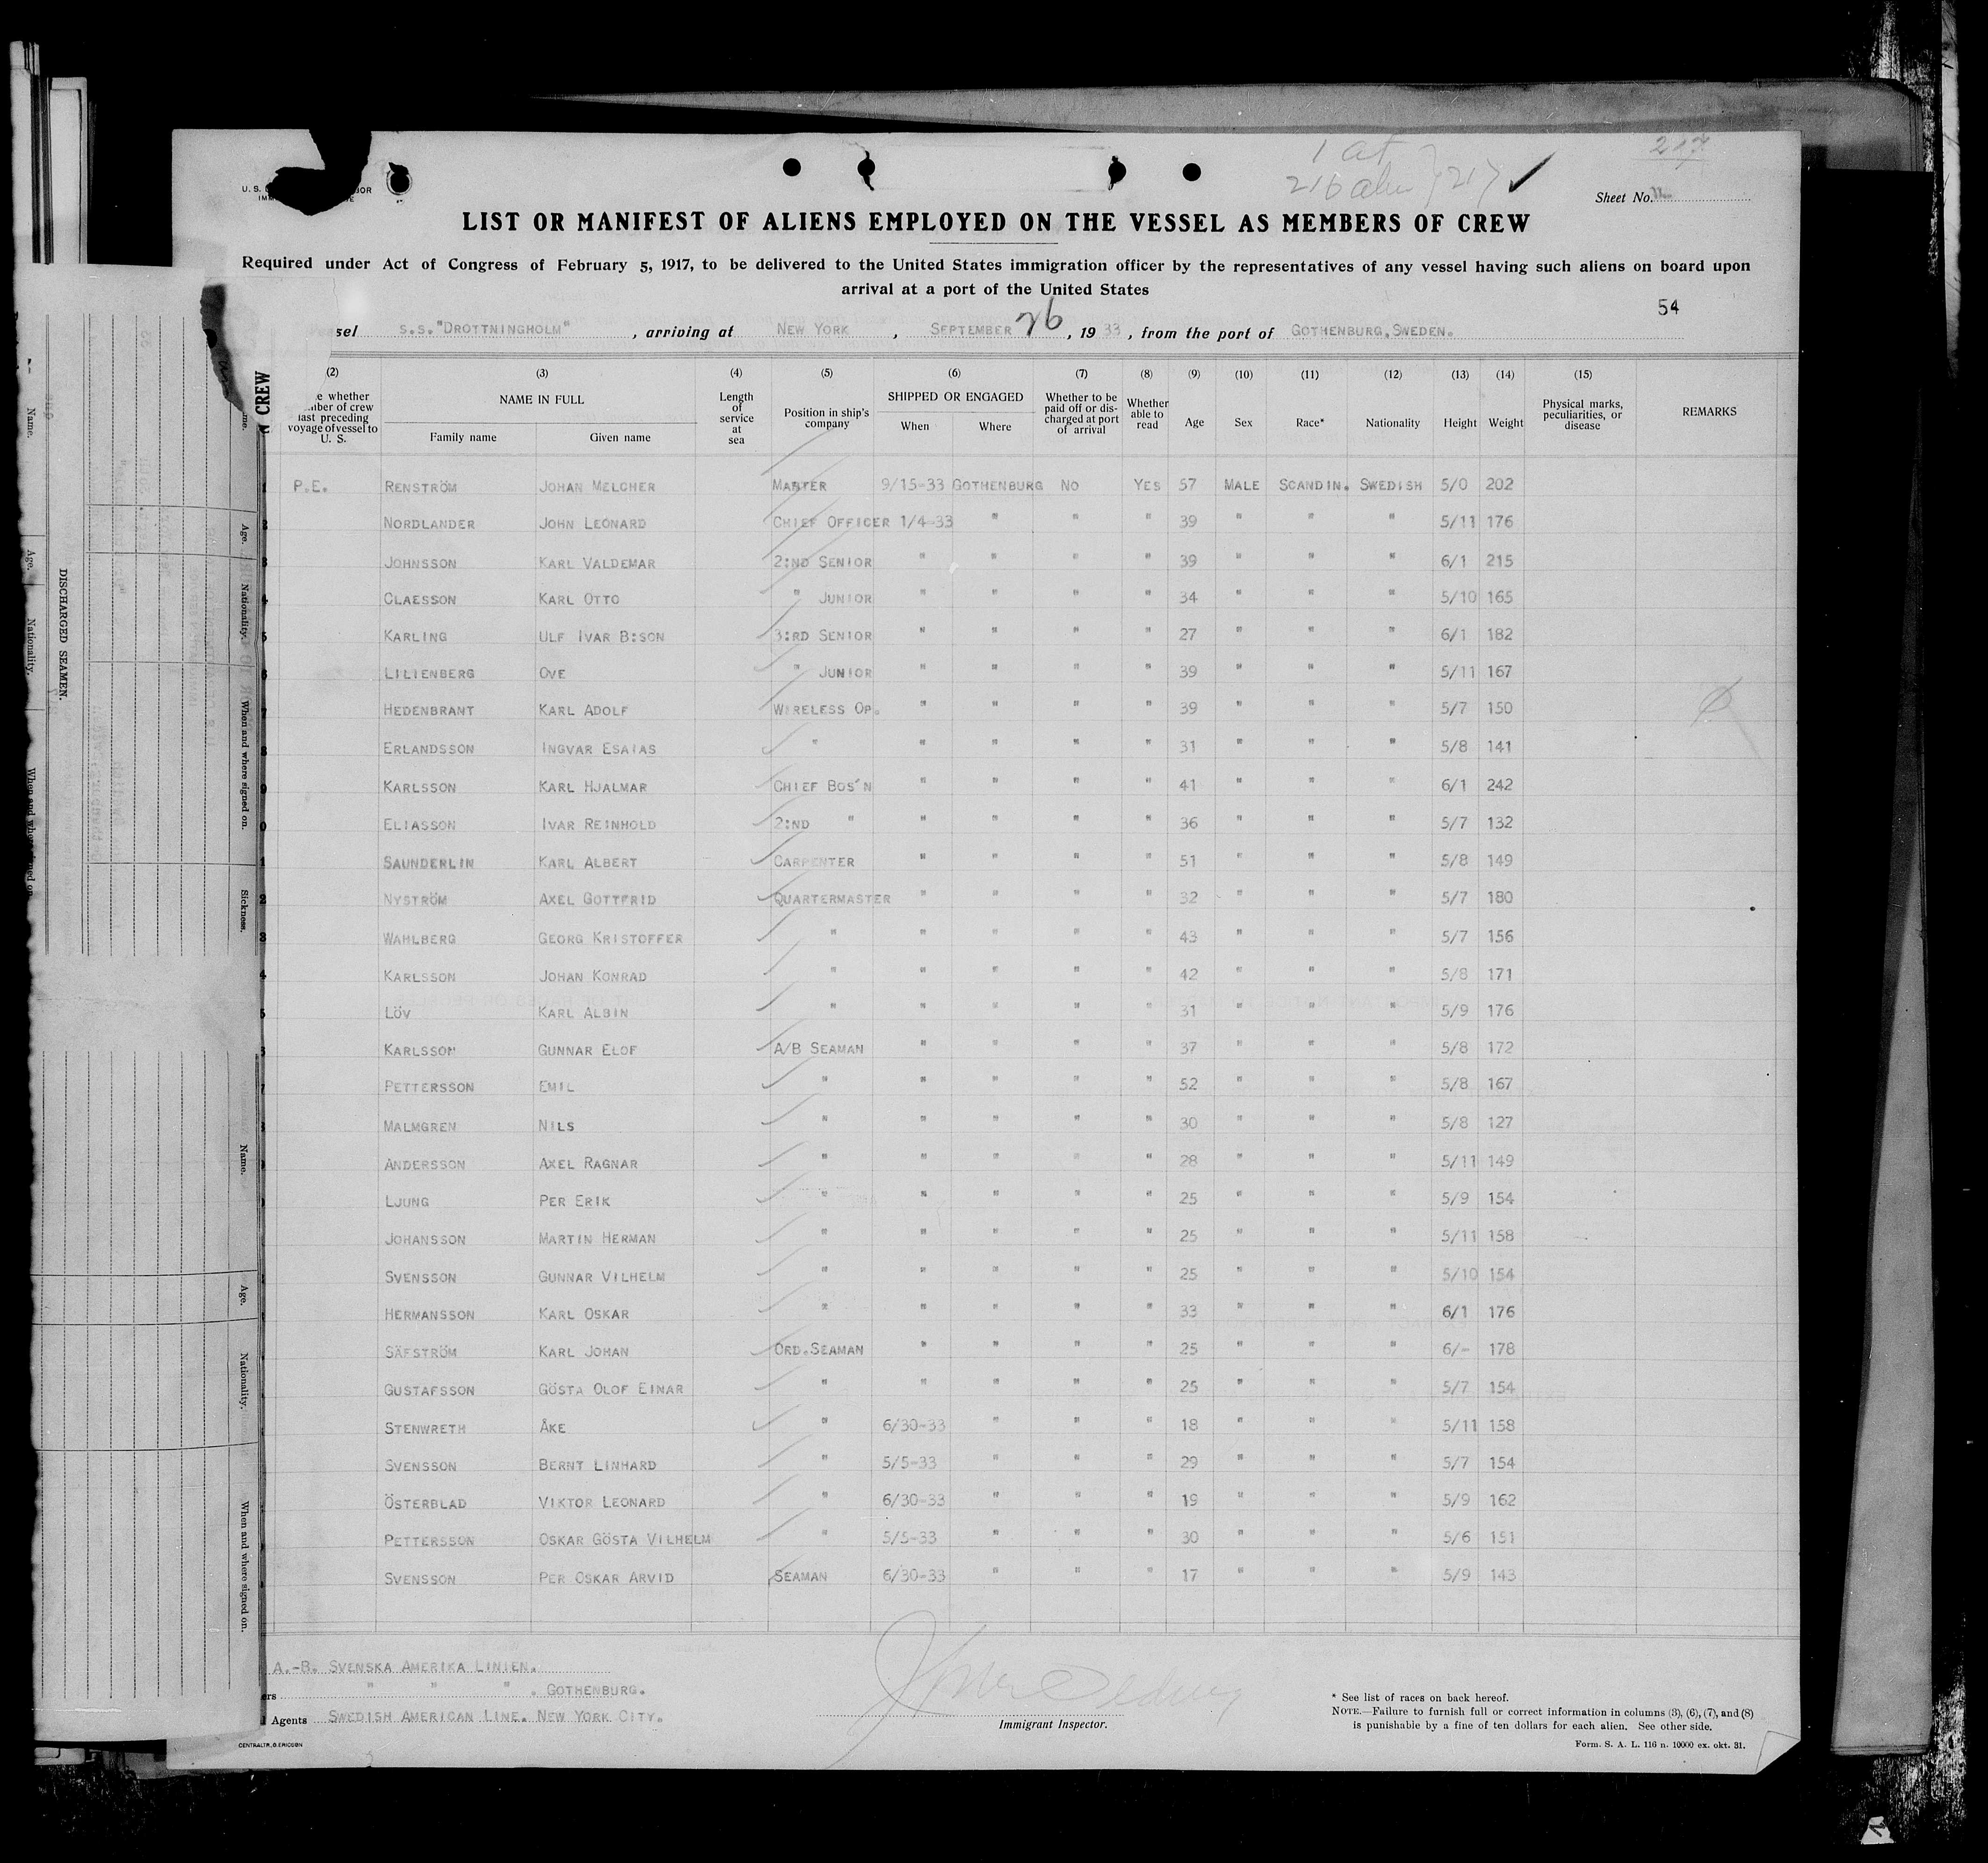 1 at
216 alu } 217 ✓
217
U. S.
Sheet No.
LIST OR MANIFEST OF ALIENS EMPLOYED ON THE VESSEL AS MEMBERS OF CREW
Required under Act of Congress of February 5, 1917, to be delivered to the United States immigration officer by the representatives of any vessel having such aliens on board upon
arrival at a port of the United States
54
sel S.S."DROTTNINGHOLM" , arriving at NEW YORK , SEPTEMBER 26 , 19 33 , from the port of GOTHENBURG, SWEDEN.
(2) (3) (4) (5) (6) (7) (8) (9) (10) (11) (12) (13) (14) (15)
e whether
ber of crew
last preceding
voyage of vessel to
U. S.
NAME IN FULL
Family name Given name
Length
of
service
at
sea
Position in ship's
company
SHIPPED OR ENGAGED
When Where
Whether to be
paid off or dis-
charged at port
of arrival
Whether
able to
read
Age Sex Race* Nationality Height Weight
Physical marks,
peculiarities, or
disease
REMARKS
P.E. RENSTRÖM JOHAN MELCHER MASTER 9/15-33 GOTHENBURG NO YES 57 MALE SCANDIN. SWEDISH 5/0 202
NORDLANDER JOHN LEONARD CHIEF OFFICER 1/4-33 " " " 39 " " " 5/11 176
JOHNSSON KARL VALDEMAR 2:ND SENIOR " " " " 39 " " " 6/1 215
CLAESSON KARL OTTO " JUNIOR " " " " 34 " " " 5/10 165
KARLING ULF IVAR B:SON 3:RD SENIOR " " " " 27 " " " 6/1 182
LILIENBERG OVE " JUNIOR " " " " 39 " " " 5/11 167
HEDENBRANT KARL ADOLF WIRELESS OP. " " " " 39 " " " 5/7 150
ERLANDSSON INGVAR ESAIAS " " " " " 31 " " " 5/8 141
KARLSSON KARL HJALMAR CHIEF BOS'N " " " " 41 " " " 6/1 242
ELIASSON IVAR REINHOLD 2:ND " " " " " 36 " " " 5/7 132
SAUNDERLIN KARL ALBERT CARPENTER " " " " 51 " " " 5/8 149
NYSTRÖM AXEL GOTTFRID QUARTERMASTER " " " " 32 " " " 5/7 180
WAHLBERG GEORG KRISTOFFER " " " " " 43 " " " 5/7 156
KARLSSON JOHAN KONRAD " " " " " 42 " " " 5/8 171
LÖV KARL ALBIN " " " " " 31 " " " 5/9 176
KARLSSON GUNNAR ELOF A/B SEAMAN " " " " 37 " " " 5/8 172
PETTERSSON EMIL " " " " " 52 " " " 5/8 167
MALMGREN NILS " " " " " 30 " " " 5/8 127
ANDERSSON AXEL RAGNAR " " " " " 28 " " " 5/11 149
LJUNG PER ERIK " " " " " 25 " " " 5/9 154
JOHANSSON MARTIN HERMAN " " " " " 25 " " " 5/11 158
SVENSSON GUNNAR VILHELM " " " " " 25 " " " 5/10 154
HERMANSSON KARL OSKAR " " " " " 33 " " " 6/1 176
SÄFSTRÖM KARL JOHAN ORD.SEAMAN " " " " 25 " " " 6/- 178
GUSTAFSSON GÖSTA OLOF EINAR " " " " " 25 " " " 5/7 154
STENWRETH ÅKE " 6/30-33 " " " 18 " " " 5/11 158
SVENSSON BERNT LINHARD " 5/5-33 " " " 29 " " " 5/7 154
ÖSTERBLAD VIKTOR LEONARD " 6/30-33 " " " 19 " " " 5/9 162
PETTERSSON OSKAR GÖSTA VILHELM " 5/5-33 " " " 30 " " " 5/6 151
SVENSSON PER OSKAR ARVID SEAMAN 6/30-33 " " " 17 " " " 5/9 143
A.-B. SVENSKA AMERIKA LINIEN.
ers " " " . GOTHENBURG.
Agents SWEDISH AMERICAN LINE. NEW YORK CITY.
Immigrant Inspector.
* See list of races on back hereof.
NOTE.—Failure to furnish full or correct information in columns (3), (6), (7), and (8)
is punishable by a fine of ten dollars for each alien. See other side.
CENTRALTR., G. ERICSON
Form. S. A. L. 116 n. 10000 ex. okt. 31.
CREW
DISCHARGED SEAMEN.
Name.
Age.
Nationality.
When and where signed on.
Sickness.
Name.
Age.
Nationality.
When and where signed on.
Name.
Age.
Nationality.
When and where signed on